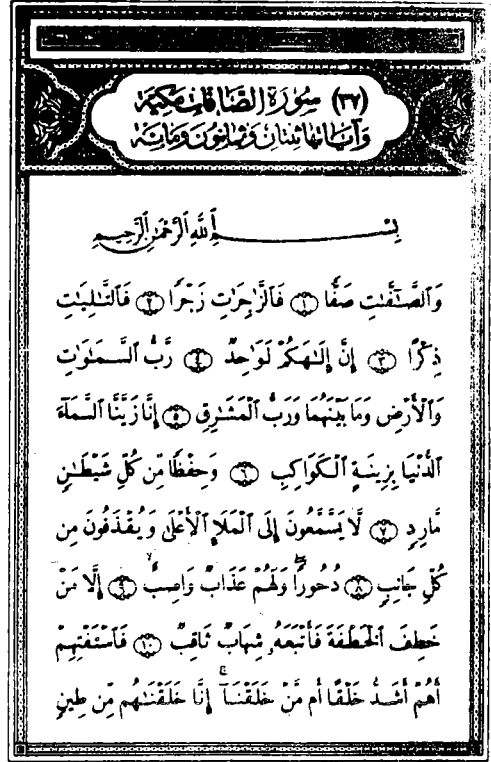 (٣٧) سُورَة الصَّافات مكيَّة
وَآيَاتُهَا ثِنتَانِ وَثَمانُونَ وَمَائَة
بِسْمِ ٱللَّهِ ٱلرَّحْمَٰنِ ٱلرَّحِيمِ
وَٱلصَّٰٓفَّٰتِ صَفًّا ١ فَٱلزَّٰجِرَٰتِ زَجْرًا ٢ فَٱلتَّٰلِيَٰتِ
ذِكْرًا ٣ إِنَّ إِلَٰهَكُمْ لَوَٰحِدٌ ٤ رَّبُّ ٱلسَّمَٰوَٰتِ
وَٱلْأَرْضِ وَمَا بَيْنَهُمَا وَرَبُّ ٱلْمَشَٰرِقِ ٥ إِنَّا زَيَّنَّا ٱلسَّمَآءَ
ٱلدُّنْيَا بِزِينَةٍ ٱلْكَوَاكِبِ ٦ وَحِفْظًا مِّن كُلِّ شَيْطَٰنٍ
مَّارِدٍ ٧ لَّا يَسَّمَّعُونَ إِلَى ٱلْمَلَإِ ٱلْأَعْلَىٰ وَيُقْذَفُونَ مِن
كُلِّ جَانِبٍ ٨ دُحُورًا ۖ وَلَهُمْ عَذَابٌ وَاصِبٌ ٩ إِلَّا مَنْ
خَطِفَ ٱلْخَطْفَةَ فَأَتْبَعَهُۥ شِهَابٌ ثَاقِبٌ ١٠ فَٱسْتَفْتِهِمْ
أَهُمْ أَشَدُّ خَلْقًا أَم مَّنْ خَلَقْنَآ ۚ إِنَّا خَلَقْنَٰهُم مِّن طِينٍ